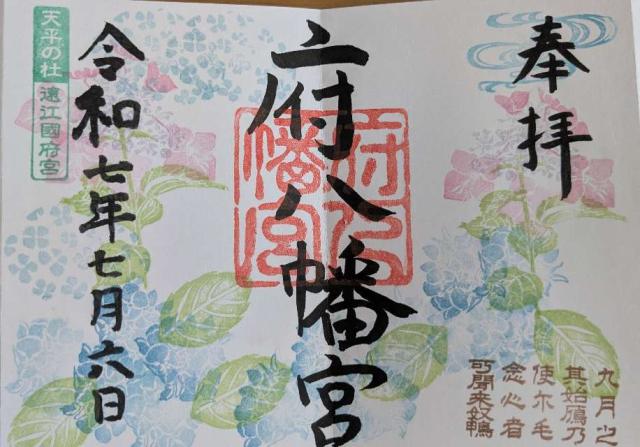 奉拝
府八幡宮
府八幡宮
令和七年七月六日
天平の杜
遠江國府宮
九月之
其始鴈乃
使尓毛
念心者
可聞来奴鴨